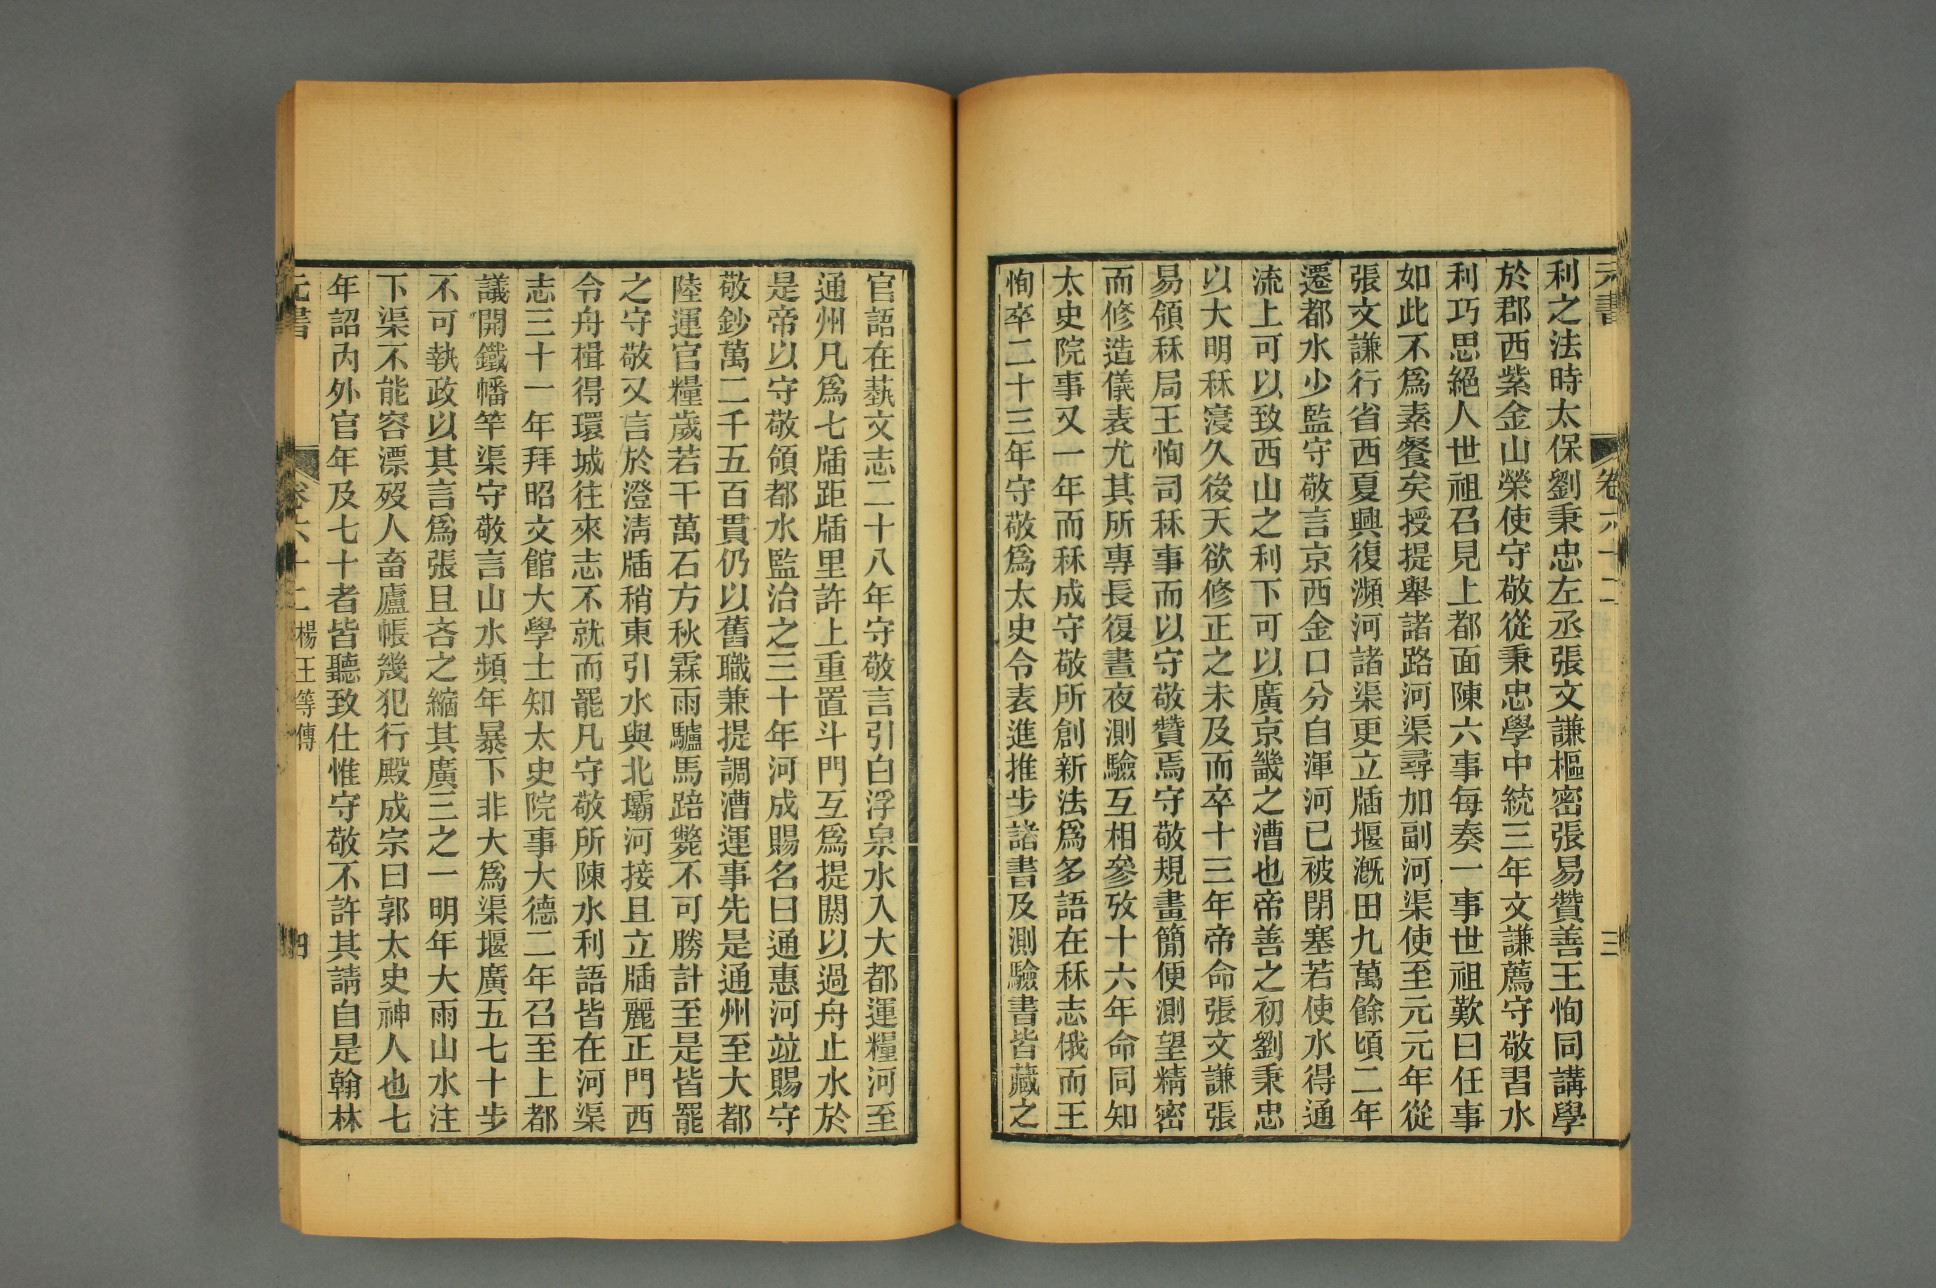 元書 卷六十二 三
利之法時太保劉秉忠左丞張文謙樞密張易贊善王恂同講學
於郡西紫金山榮使守敬從秉忠學中統三年文謙薦守敬習水
利巧思絕人世祖召見上都面陳六事每奏一事世祖歎曰任事
如此不爲素餐矣授提舉諸路河渠尋加副河渠使至元元年從
張文謙行省西夏興復瀕河諸渠更立牐堰漑田九萬餘頃二年
遷都水少監守敬言京西金口分自渾河已被閉塞若使水得通
流上可以致西山之利下可以廣京畿之漕也帝善之初劉秉忠
以大明秝寖久後天欲修正之未及而卒十三年帝命張文謙張
易領秝局王恂司秝事而以守敬贊焉守敬規畫簡便測望精密
而修造儀表尤其所專長復晝夜測驗互相參攷十六年命同知
太史院事又一年而秝成守敬所創新法爲多語在秝志俄而王
恂卒二十三年守敬爲太史令表進推步諸書及測驗書皆藏之
官語在蓺文志二十八年守敬言引白浮泉水入大都運糧河至
通州凡爲七牐距牐里許上重置斗門互爲提閼以過舟止水於
是帝以守敬領都水監治之三十年河成賜名曰通惠河竝賜守
敬鈔萬二千五百貫仍以舊職兼提調漕運事先是通州至大都
陸運官糧歲若干萬石方秋霖雨驢馬踣斃不可勝計至是皆罷
之守敬又言於澄淸牐稍東引水與北壩河接且立牐麗正門西
令舟楫得環城往來志不就而罷凡守敬所陳水利語皆在河渠
志三十一年拜昭文館大學士知太史院事大德二年召至上都
議開鐵幡竿渠守敬言山水頻年暴下非大爲渠堰廣五七十步
不可執政以其言爲張且吝之縮其廣三之一明年大雨山水注
下渠不能容漂歿人畜廬帳幾犯行殿成宗曰郭太史神人也七
年詔內外官年及七十者皆聽致仕惟守敬不許其請自是翰林
元書 卷六十二 楊王等傳 四